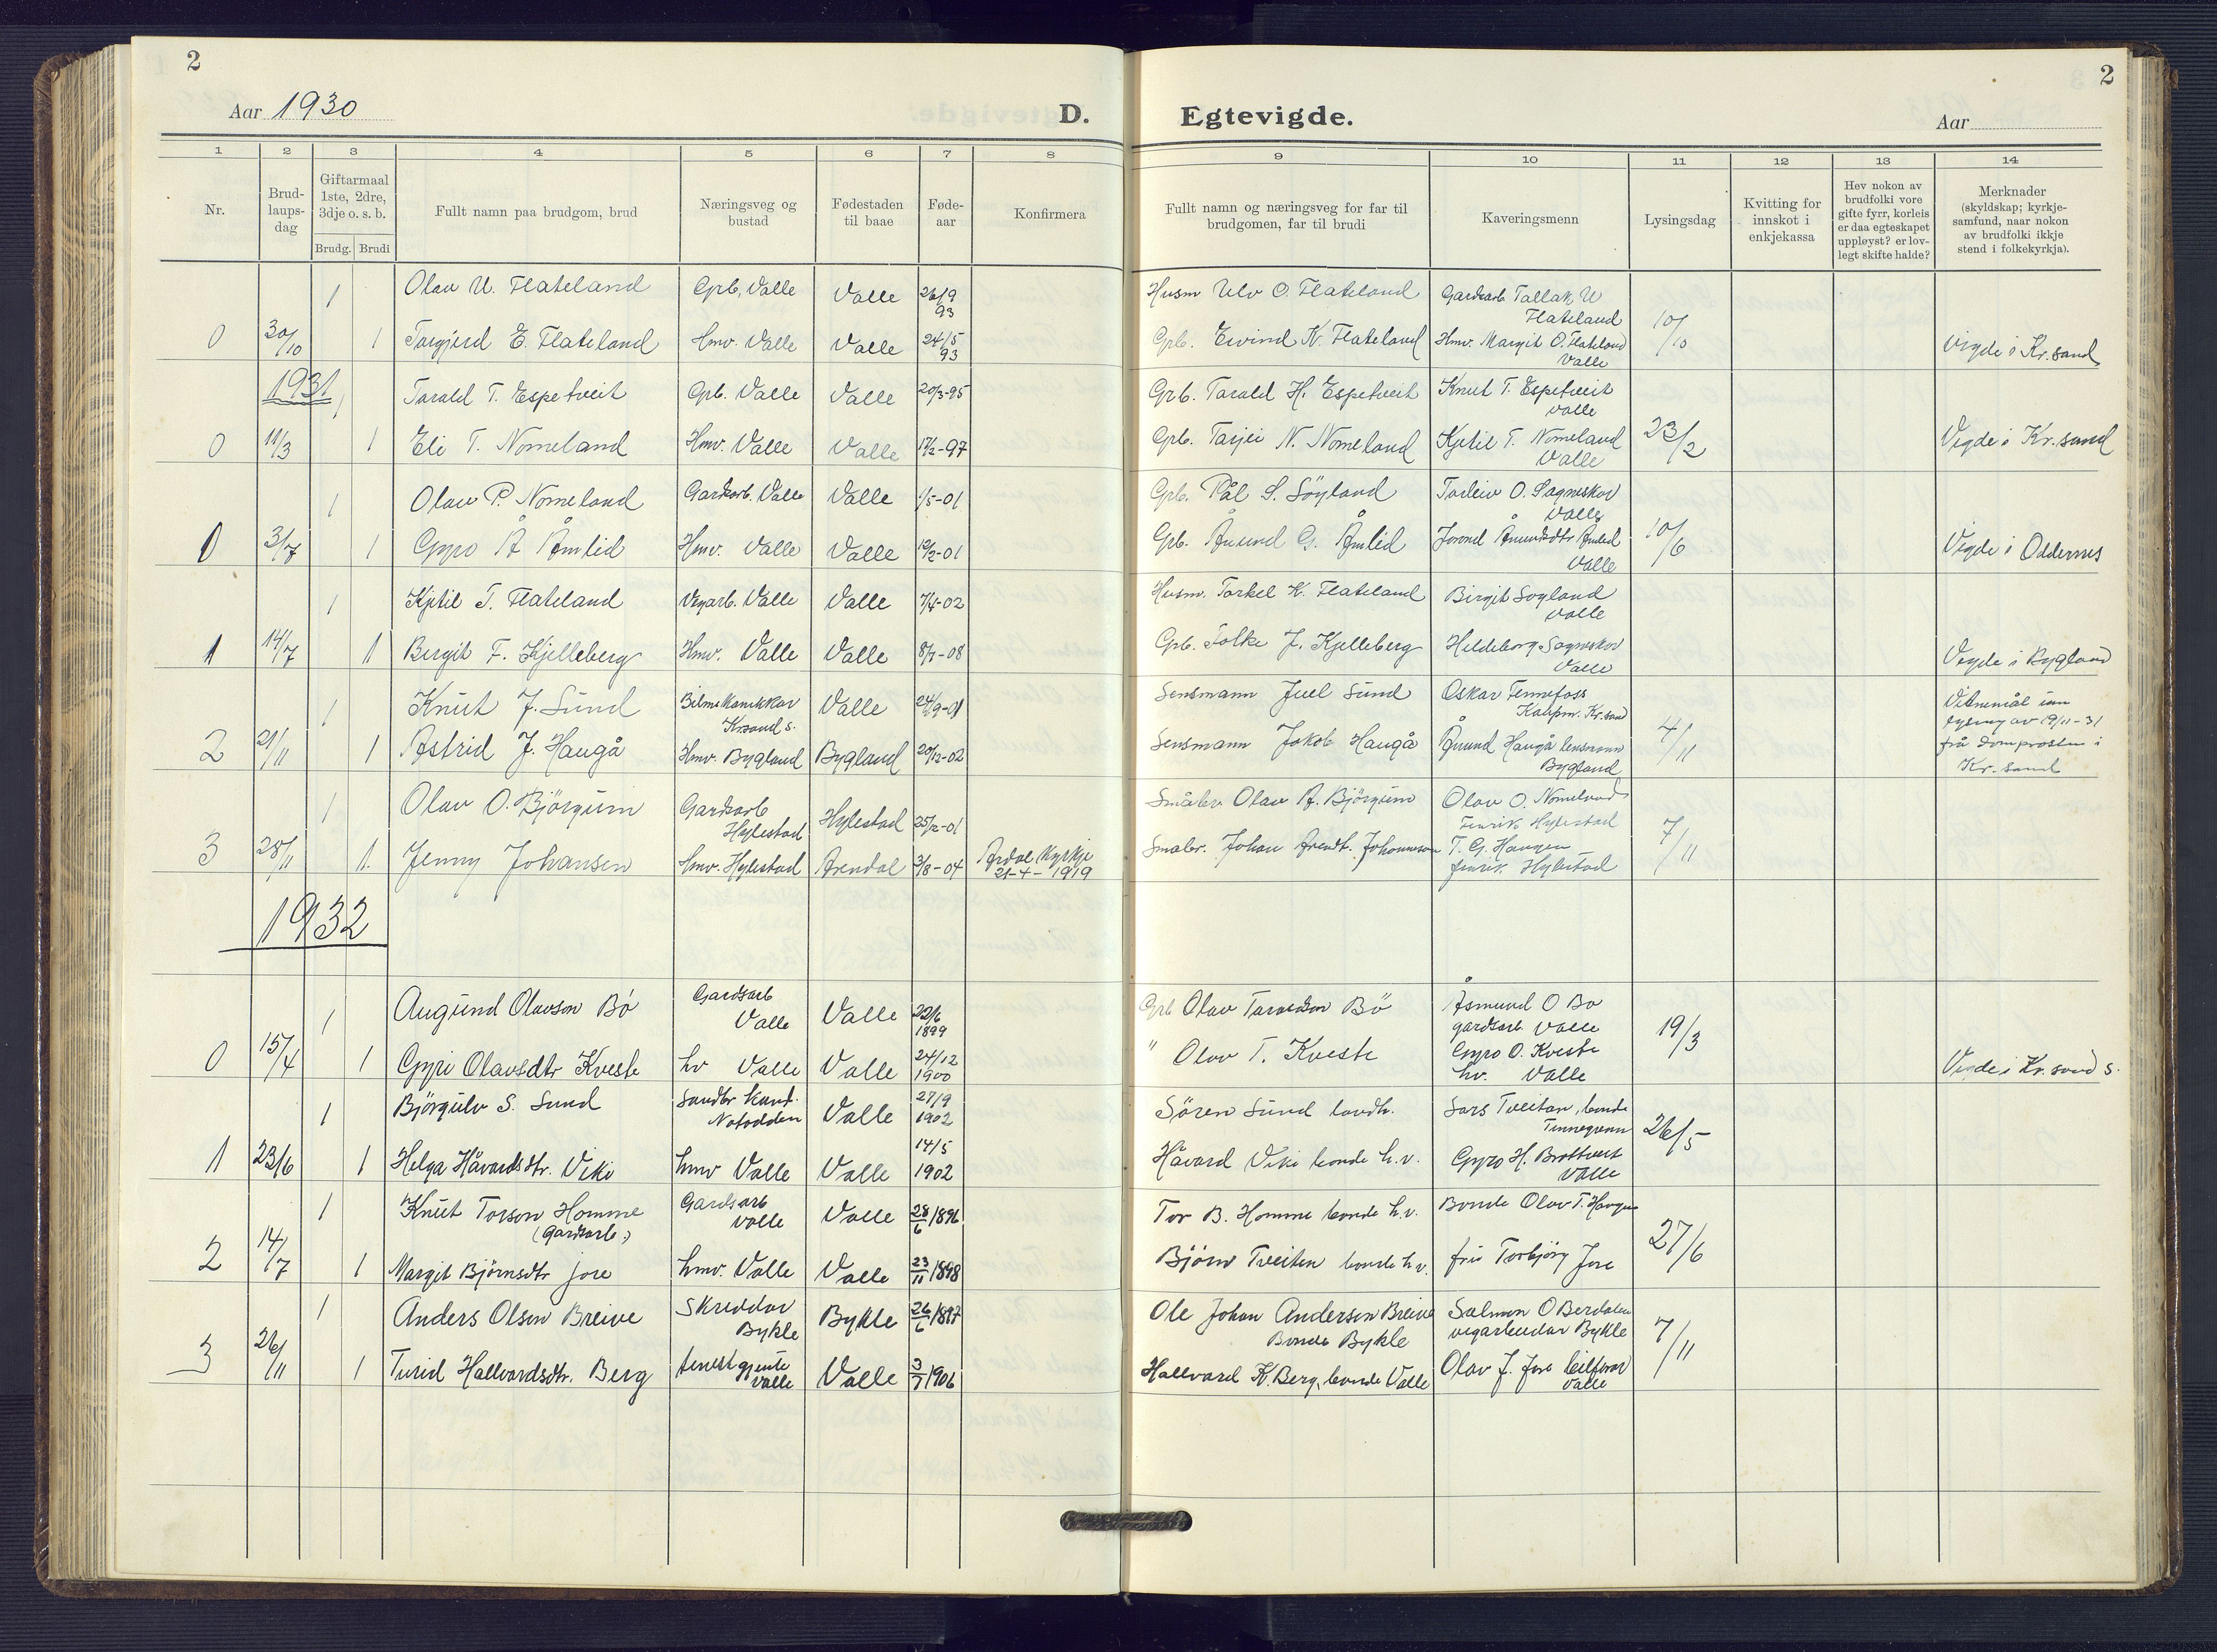 2
Aar 1930
D.
Egtevigde.
Aar
2
1 2 3 4 5 6 7 8 9 10 11 12 13 14
Nr.
Brud-
laups-
dag
Giftarmaal
1ste, 2dre,
3dje o. s. b.
Brudg. Brudi
Fullt namn paa brudgom, brud
Næringsveg og
bustad
Fødestaden
til baae
Føde-
aar
Konfirmera
Fullt namn og næringsveg for far til
brudgomen, far til brudi
Kaveringsmenn
Lysingsdag
Kvitting for
innskot i
enkjekassa
Hev nokon av
brudfolki vore
gifte fyrr, korleis
er daa egteskapet
uppløyst? er lov-
legt skifte halde?
Merknader
(skyldskap; kyrkje-
samfund, naar nokon
av brudfolki ikkje
stend i folkekyrkja).
1 Olav U. Flateland Grb. Valle Valle 26/9 93 Husm Ulv O. Flateland Gardsarb Tallak U Flateland
0 30/10 1 Torgjerd E. Flateland Hmv. Valle Valle 24/5 93 Grb. Eivind K. Flateland Hmv. Margit O. Flateland Valle 10/10 Vigde i Kr.sand
1931
1 Tarald T. Espetveit Grb. Valle Valle 20/3-95 Grb. Tarald H. Espetveit Knut T. Espetveit Valle
0 11/3 1 Eli T. Nomeland Hmv. Valle Valle 17/2-97 Grb. Tarjei N. Nomeland Kjetil T. Nomeland Valle 23/2 Vigde i Kr.sand
1 Olav P. Nomeland Gardsarb. Valle Valle 1/5-01 Grb. Pål S. Söyland Torleiv O. Sagneskar Valle
0 3/7 1 Gyro Å Åmlid Hmv. Valle Valle 12/2-01 Grb. Ånund G. Åmlid Jorond Ånundsdtr Åmlid Valle 10/6 Vigde i Oddernes
1 Kjetil T. Flateland Vegarb. Valle Valle 7/4-02 Husm. Torkel K. Flateland Birgit Sogland Valle
1 14/7 1 Birgit F. Kjelleberg Hmv. Valle Valle 8/7-08 Grb. Folke J. Kjelleberg Hildeborg Sagneskar Valle Vigde i Bygland
1 Knut J. Sund Bilmekanikkar Kr.sand s. Valle 24/9-01 Lensmann Juel Sund Oskar Fennefoss Kaupm. Kr.sand
2 21/11 1 Astrid J. Haugå Hmv. Bygland Bygland 20/12-02 Lensmann Jakob Haugå Ånund Haugå lensmann Bygland 4/11 Vitnemål um lysing av 19/11-31 frå domprosten i Kr.sand
1 Olav O. Björgum Gardsarb Hylestad Hylestad 25/2-01 Småbr Olav A. Björgum Olav O. Nomeland Hylestad
3 28/11 1 Jenny Johansen Hmv. Hylestad Arendal 3/8-04 Ardal Kyrkje 21-4-1919 Småbr. Johan Arent. Johannson T. G. Haugen Hylestad 7/11
1932
1 Augund Olavson Bö Gardsarb Valle Valle 22/6 1899 Grb Olav Taraldson Bö Åsmund O Bö gardsarb. Valle
0 15/4 1 Gyri Olavsdtr Kveste hv Valle Valle 24/12 1900 " Olav T. Kveste Gyro O. Kveste hv. Valle 19/3 Vigde i Kr.sand s.
1 Björgulv S. Sund Notodden Valle 27/9 1902 Sören Sund landh. Lars Tveitan, bonde
1 23/6 1 Helga Håvardsdtr. Viki hmv Valle Valle 14/5 1902 Håvard Viki bonde h.v. Gyro H. Brottveit Valle 26/5
1 Knut Torson Homme (Gardsarb.) Gardsarb Valle Valle 28/6 1896 Tor B. Homme bonde h.v. Bonde Olav T. Haugen
2 14/7 1 Margit Björnsdtr Jore hmv. Valle Valle 23/11 1898 Björn Tveiten bonde h.v. fru Torbjörg Jore 27/6
1 Anders Olson Breive Skreddar Bykle Bykle 26/6 1897 Ole Johan Anderson Breive Bonde Bykle Salmon O Berdalen vegarbeidar Bykle
3 26/11 1 Turid Hallvardsdtr. Berg tenestgjente Valle Valle 3/7 1906 Hallvard K. Berg, bonde Valle Olav J. Jore bilförar Valle 7/11